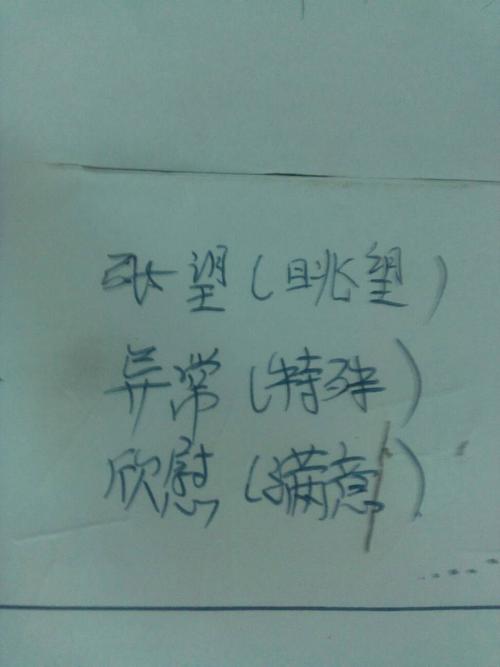 张望(眺望)
异常(特殊)
欣慰(满意)